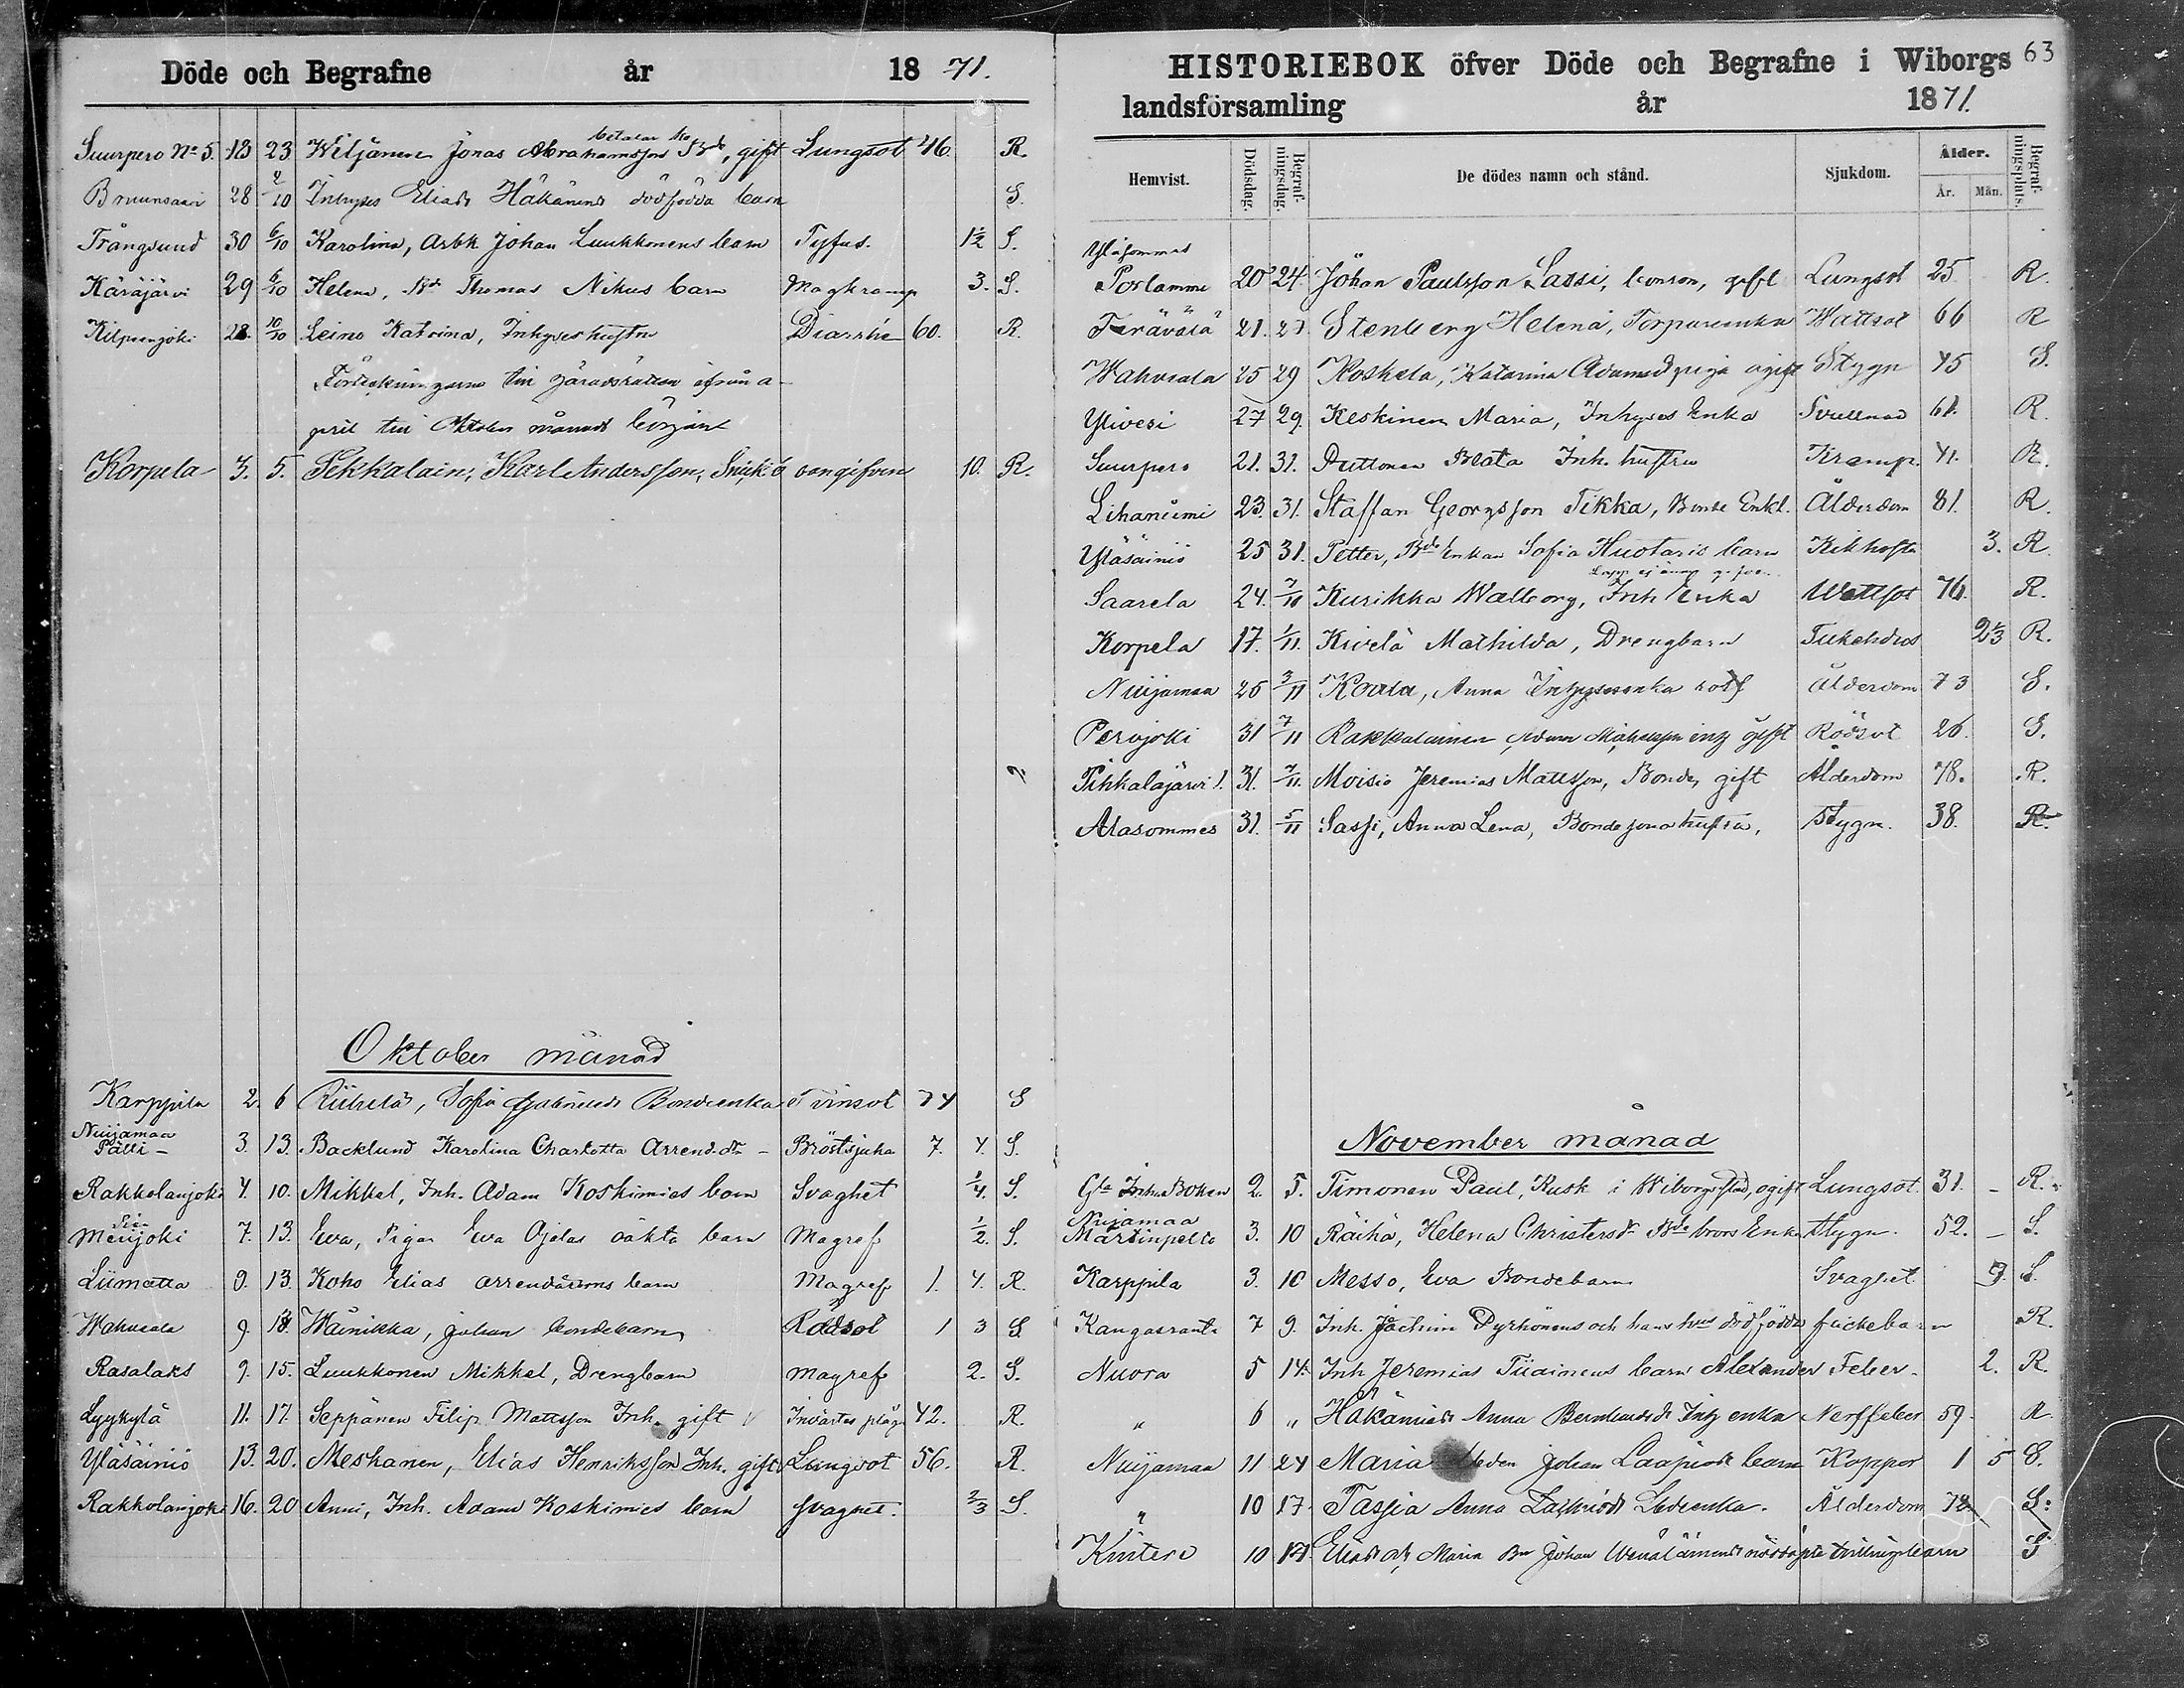 Döde och Begrafne år 1871.
Suurpero No 5. 13 23 Wiljanen Jonas Abrahamsson Bde, gift Lungsot 46. R.
betalar
Bruunsaari 28 2/10 Inhyses Elias Häkänens dödfödda barn S.
Trångsund 30 6/10 Karolina, Arbk Johan Luukkonens barn Tyfus. 1/2 S.
Käräjärvi 29 6/10 Helena, Bde Thomas Nikus barn Magkramp 3. S.
Kilpeenjoki 28. 10/10 Leino Katrina, Inhyseshustru Diarrhé 60. R.
Förteckningarne till häradsrätten ifrån a-
pril till Oktober månads början
Korpela 3. 5. Sekkalain, Karl Andersson, Snick. b oangifven 10. R.
Oktober månad
Karppila 2. 6 Riihelä, Sofia Gabrielsdr Bondeenka Tvinsot 74 S
Nuijamaa
Pälli - 3. 13. Backlund Karolina Charlotta Arrend. dr - Bröstsjuka 7. 4. S.
Rakkolanjoki 4. 10. Mikkel, Inh. Adam Koskimies barn Svaghet 1/4. S.
Merijoki 7. 13. Eva, Pigan Eva Ojalas oäkta barn Magref 1/2. S.
Liimatta 9. 13. Koho Elias arrendatorns barn Magref 1. 4. R.
Wahviala 9. 18. Wäinikka, Johan bondebarn Rödsot 1 3 S.
Rasalaks 9. 15. Luukkonen Mikkel, Drengbarn Magref 2. S.
Lyykylä 11. 17. Seppänen Filip Mattsson Inh. gift Invärtes plåg. 42. R.
Yläsäiniö 13. 20. Meskanen, Elias Henriksson Inh. gift Lungsot 56. R.
Rakkolanjoki 16. 20 Anni, Inh. Adam Koskimies barn Svaghet. 2/3 S.
HISTORIEBOK öfver Döde och Begrafne i Wiborgs 63
landsförsamling år 1871.
Hemvist. Dödsdag. Begrafningsdag. De dödes namn och stånd. Sjukdom. Ålder. Begrafningsplats.
År. Mån.
Yläsommes
Porlamme 20 24. Johan Paulsson Sassi, bonson, gift Lungsot 25 R.
Terävälä 21. 27 Stenberg Helena, Torpareenka Wattsot 66 R
Wahviala 25 29 Koskela, Katarina Adamsdr piga ogift Stygn 45 S.
Ylivesi 27 29. Keskinen Maria, Inhyses Enka Svullnad 61. R.
Suurpero 21. 31. Puttonen Beata Inh. hustru Kramp. 41. R.
Lihaniemi 23. 31. Staffan Georgsson Tikka, Bonde Enkl. Ålderdom 81. R.
Yläsäiniö 25 31. Petter, Bde Enkan Sofia Huotaris barn Kikhosta 3. R.
Saarela 24. 7/11 Kurikka Walborg, Inh Enka Wattsot 76. R.
Korpela 17. 1/11. Kivelä Mathilda, Drengbarn 2 1/3 R.
Nuijamaa 25 3/11 Koala, Anna Inhysesenka Ålderdom 73 S.
Pervjoki 31 7/11 Rakkolainen Adam inh gift Rödsot 26. S.
Pihkalajärvi 1. 31. 7/11. Moisio Jeremias Mattsson, Bonde, gift Ålderdom 78. R.
Alasommes 31. 5/11 Sassi, Anna Lena, Bondesona hustru, Stygn. 38. R.
November månad
Gla Inh. Boken 2. 5. Timonen Paul, Kusk i Wiborgs stad, ogift Lungsot. 31. - R.
Nuijamaa
Martinpelto 3. 10 Räihä, Helena Christersdr Bde brors Enka Stygn. 52. - S.
Karppila 3. 10 Messo, Eva Bondebarn Svaghet 9. S.
Kangasranta 7 9. Inh. Joachim Pyrhönens och hans hus dödfödda flickebarn R.
Nuora 5 14. Inh Jeremias Tiiainens barn Alexander Feber. 2. R.
" 6 " Häkämies Anna Bernhardsdr Inh enka Nerffeber 59. R
Nuijamaa 11 24 Maria Johan Laapiods barn Koppor 1 5 S.
" 10 17. Tassia Anna Ålderdom 78 S.
Kintere 10 17. Elias och Maria Bn Johan nöddöpta tvillingebarn S